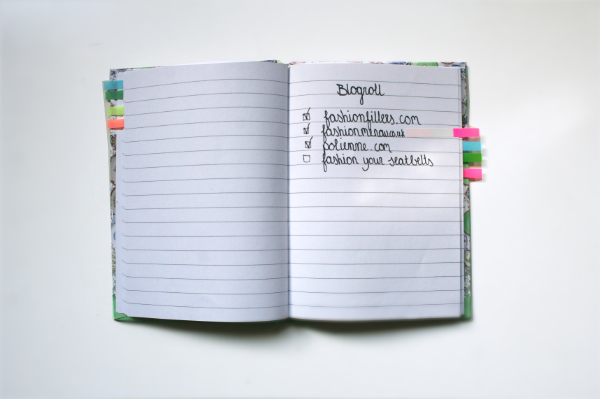 Blogroll
fashionfillers.com
polienne.com
fashion your seatbelts